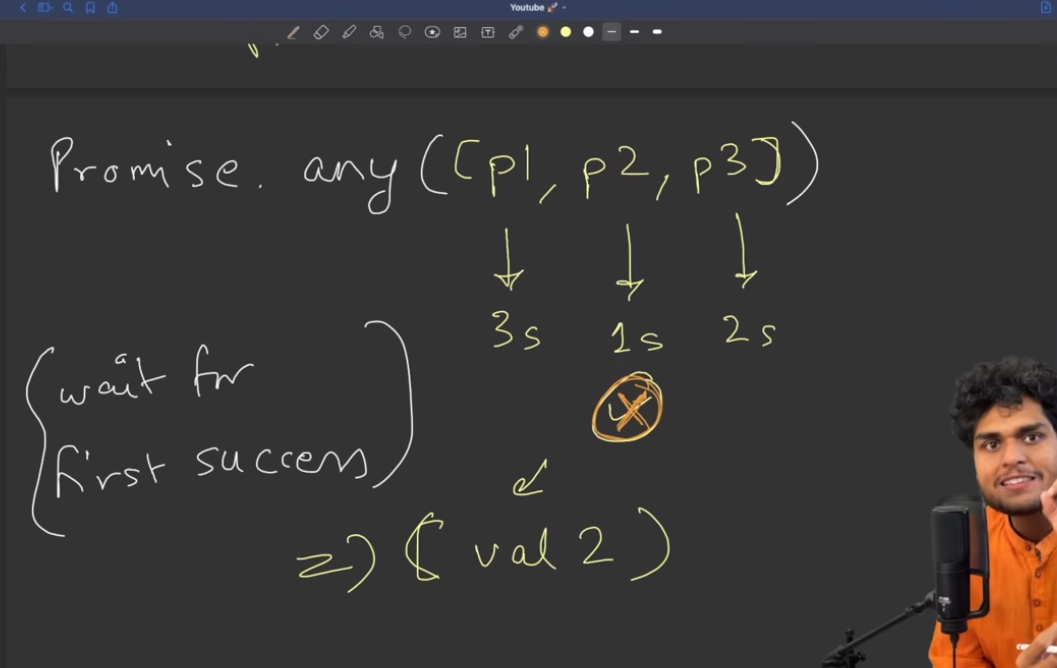 Youtube 🚀
Promise. any ([p1, p2, p3])
3s 1s 2s
wait for
first success
=> ( val 2 )